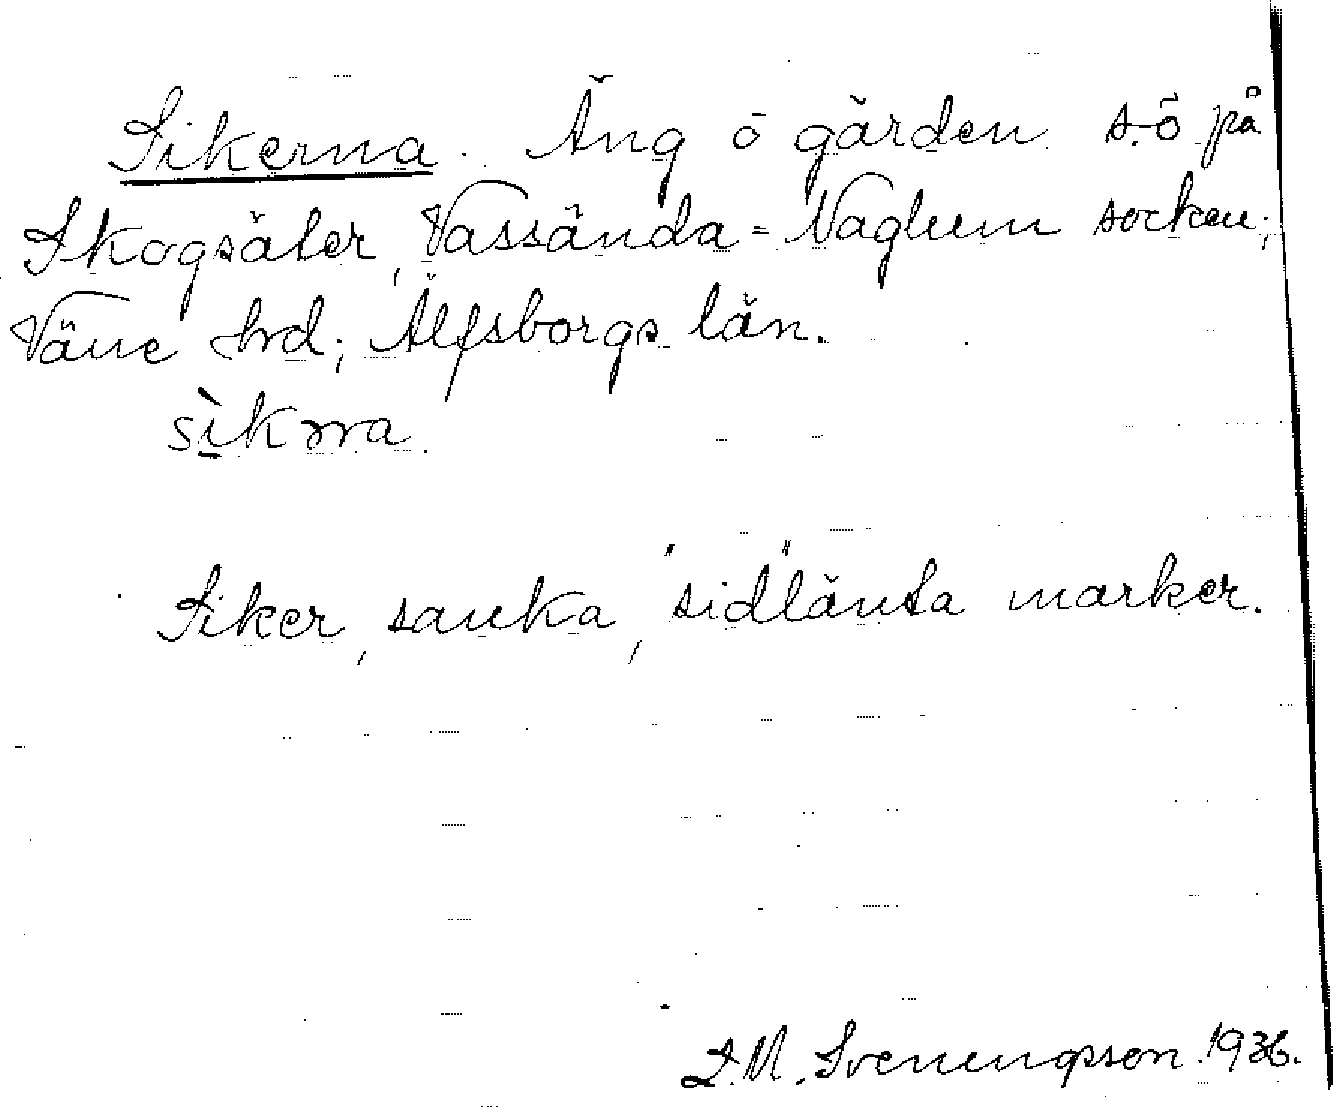 Sikerna. Äng ö gården s.ö på
Skogsäter, Vassända-Naglum socken;
Väne hrd; Älfsborgs län.
sìkrra
Siker, sanka, "sidlänta" marker.
D.M. Svenungsson 1936.